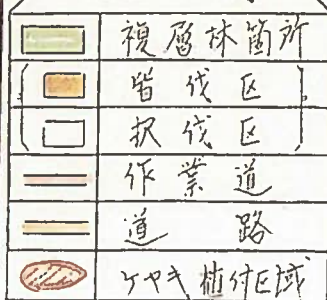 複層林箇所
皆伐区
択伐区
作業道
道路
ケヤキ植付区域